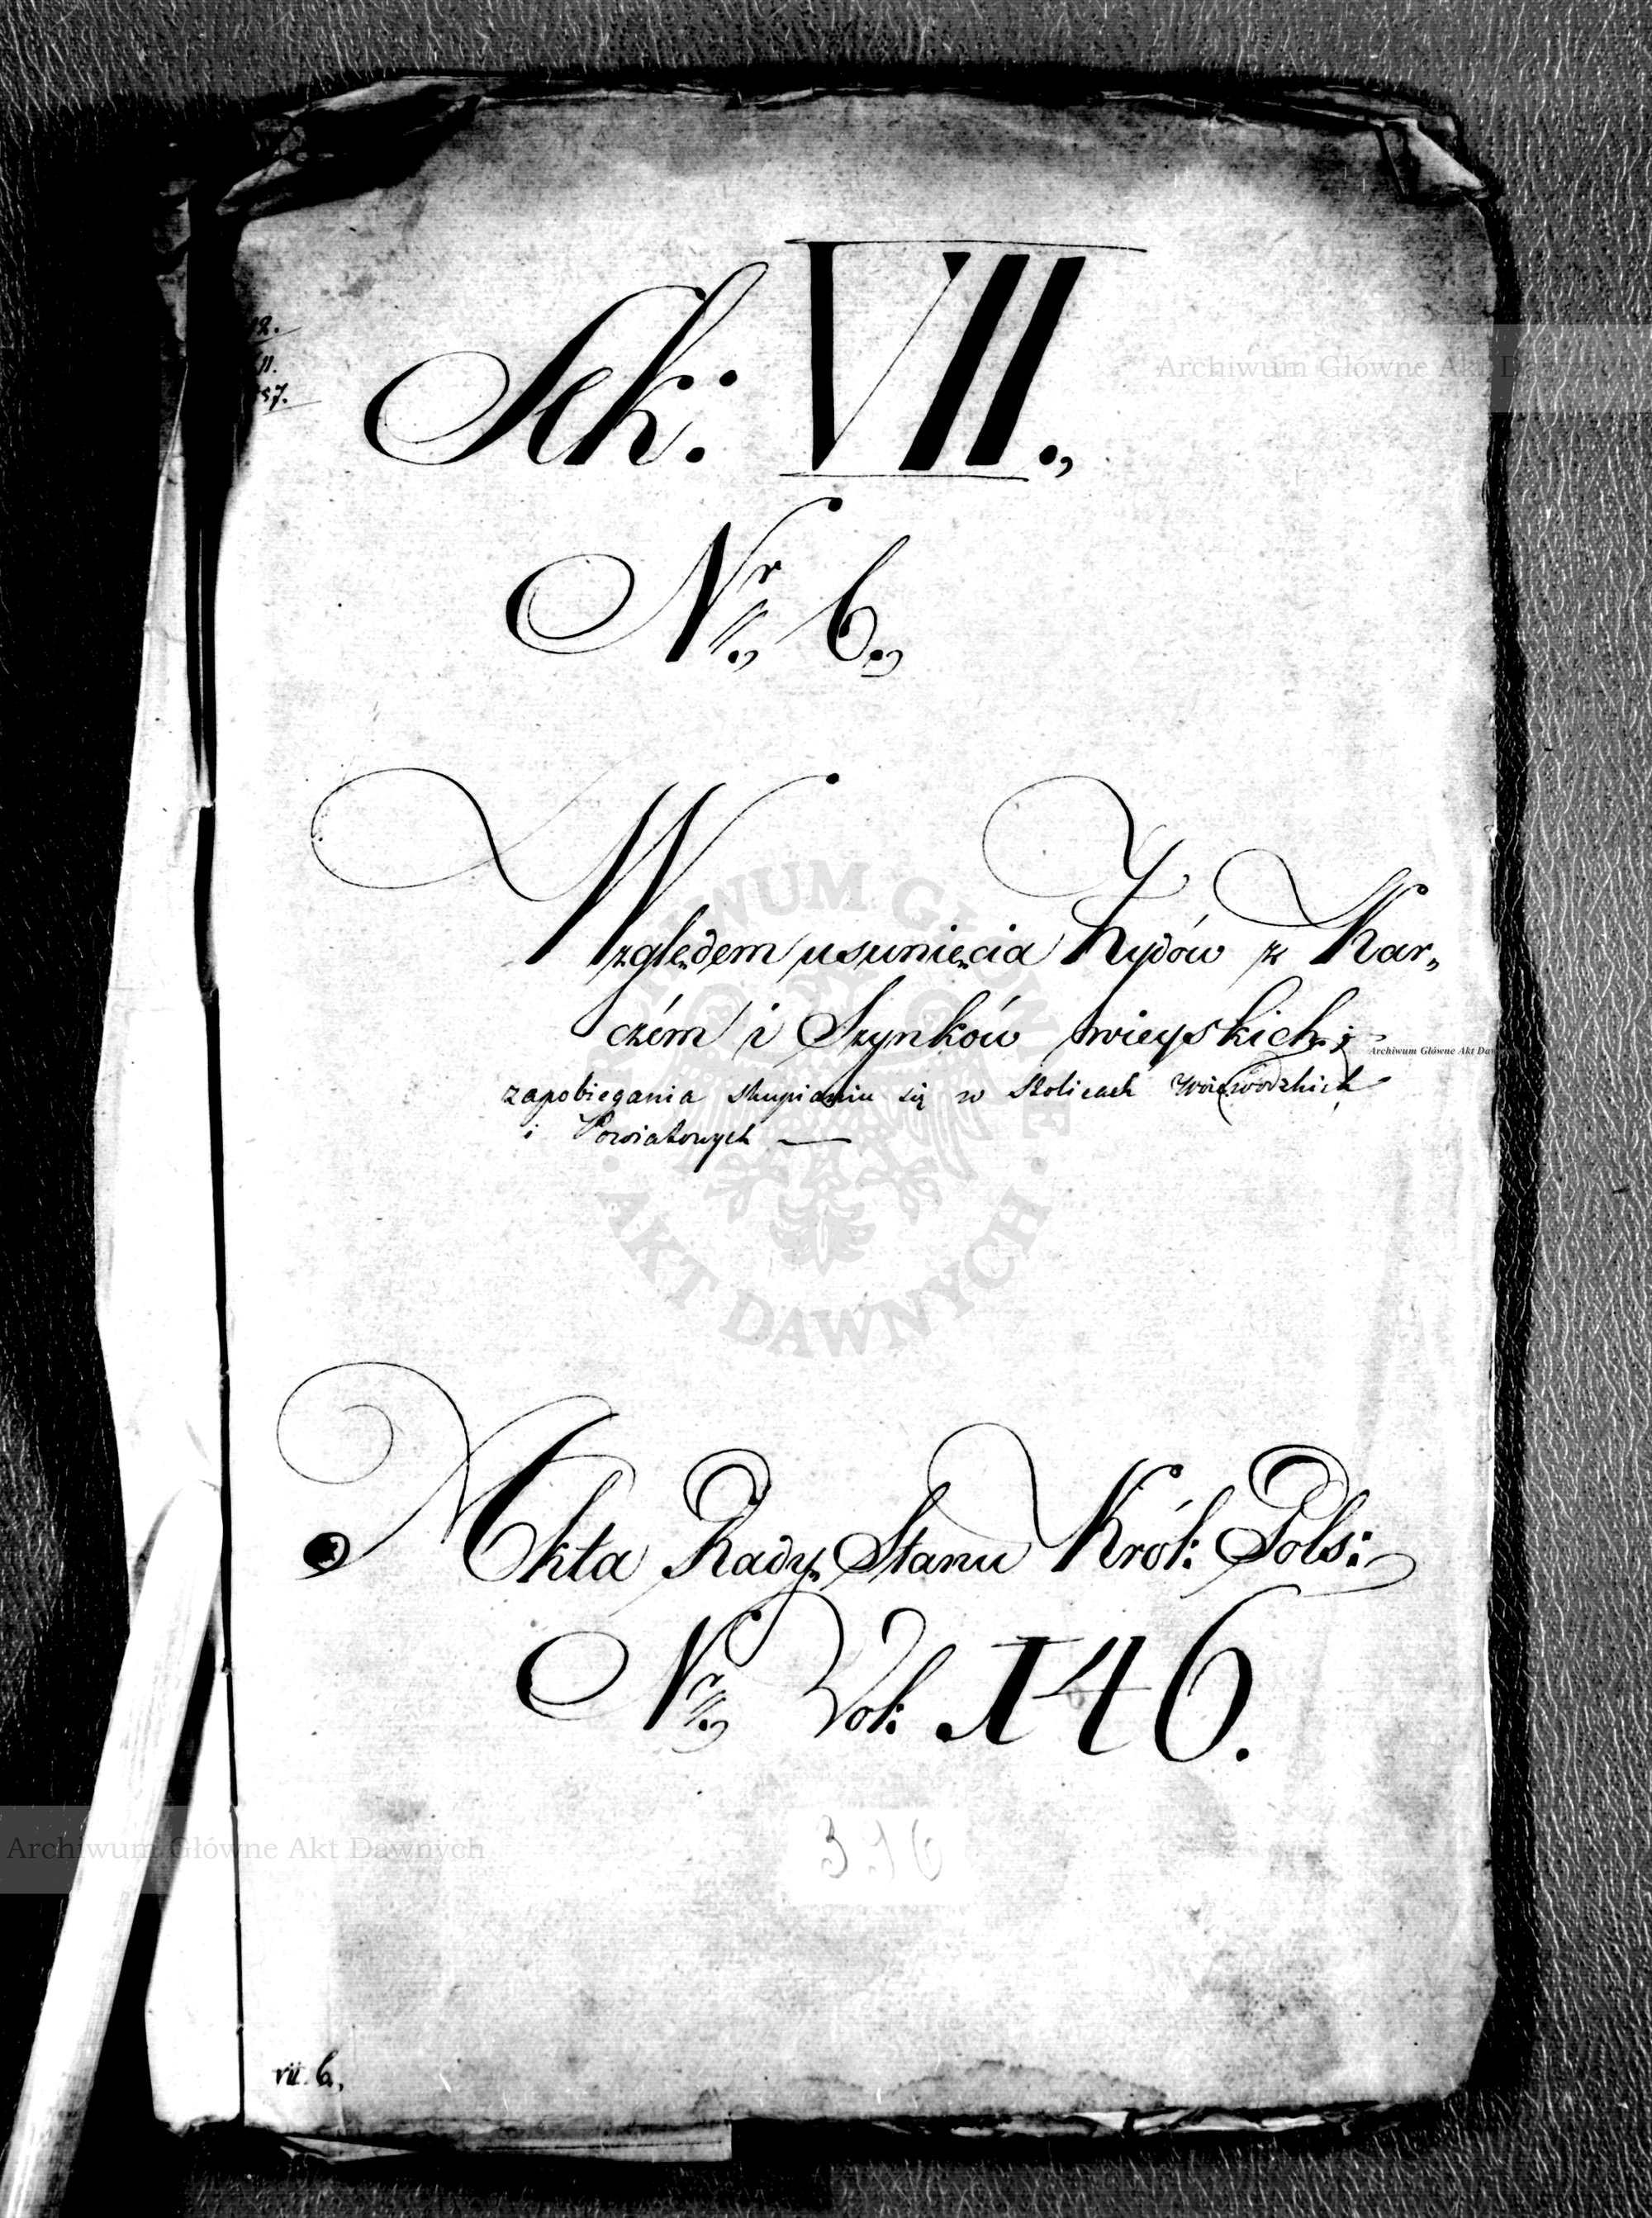 12.
11.
57.
Sek: VII.,
Nr. 6.,
Względem usunięcia Żydów z Kar„
czém i Szynków wieyskich i
zapobiegania skupianiu się w stolicach Woiewodzkich
i Powiatowych —
Akta Rady Stanu Król: Pols:
Nr. Vol: 146.
316
vii. 6.,
Archiwum Główne Akt Dawnych
Archiwum Główne Akt Dawnych
Archiwum Główne Akt Dawnych
ARCHIWUM GŁÓWNE · AKT DAWNYCH ·